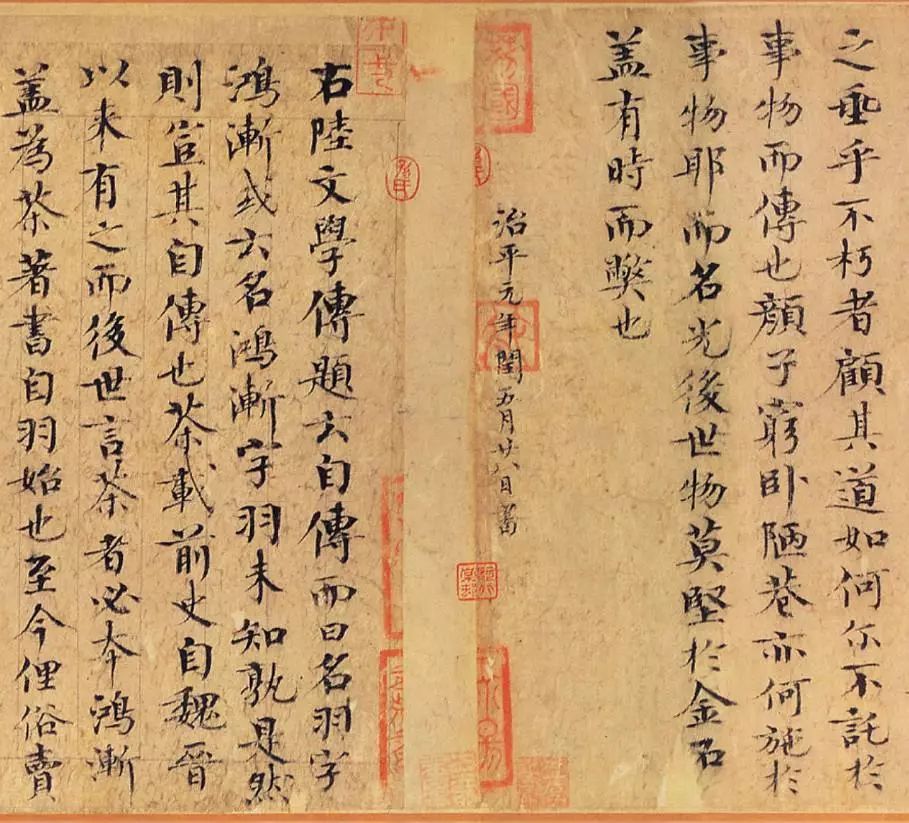 之垂乎不朽者顧其道如何尓不託於
事物而傳也顏子窮卧陋巷亦何施於
事物耶而名光後世物莫堅於金石
盖有時而獘也
治平元年閏五月廿八日書
右陸文學傳題云自傳而曰名羽字
鴻漸或云名鴻漸字羽未知孰是然
則豈其自傳也茶載前史自魏晉
以来有之而後世言茶者必夲鴻漸
盖為茶著書自羽始也至今俚俗賣